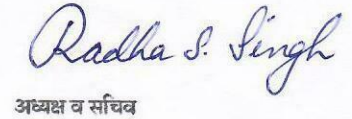 Radha S. Singh
अध्यक्ष व सचिव